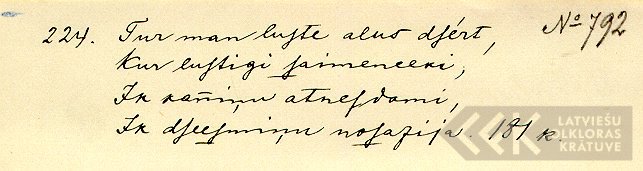 224. Tur man luste alus dsért, No 792
Kur lustigi saimeneeki;
Ik kaņiņu atnesdami,
Ik dseesmiņu nosazija. 181 k.
LATVIEŠU
FOLKLORAS
KRĀTUVE